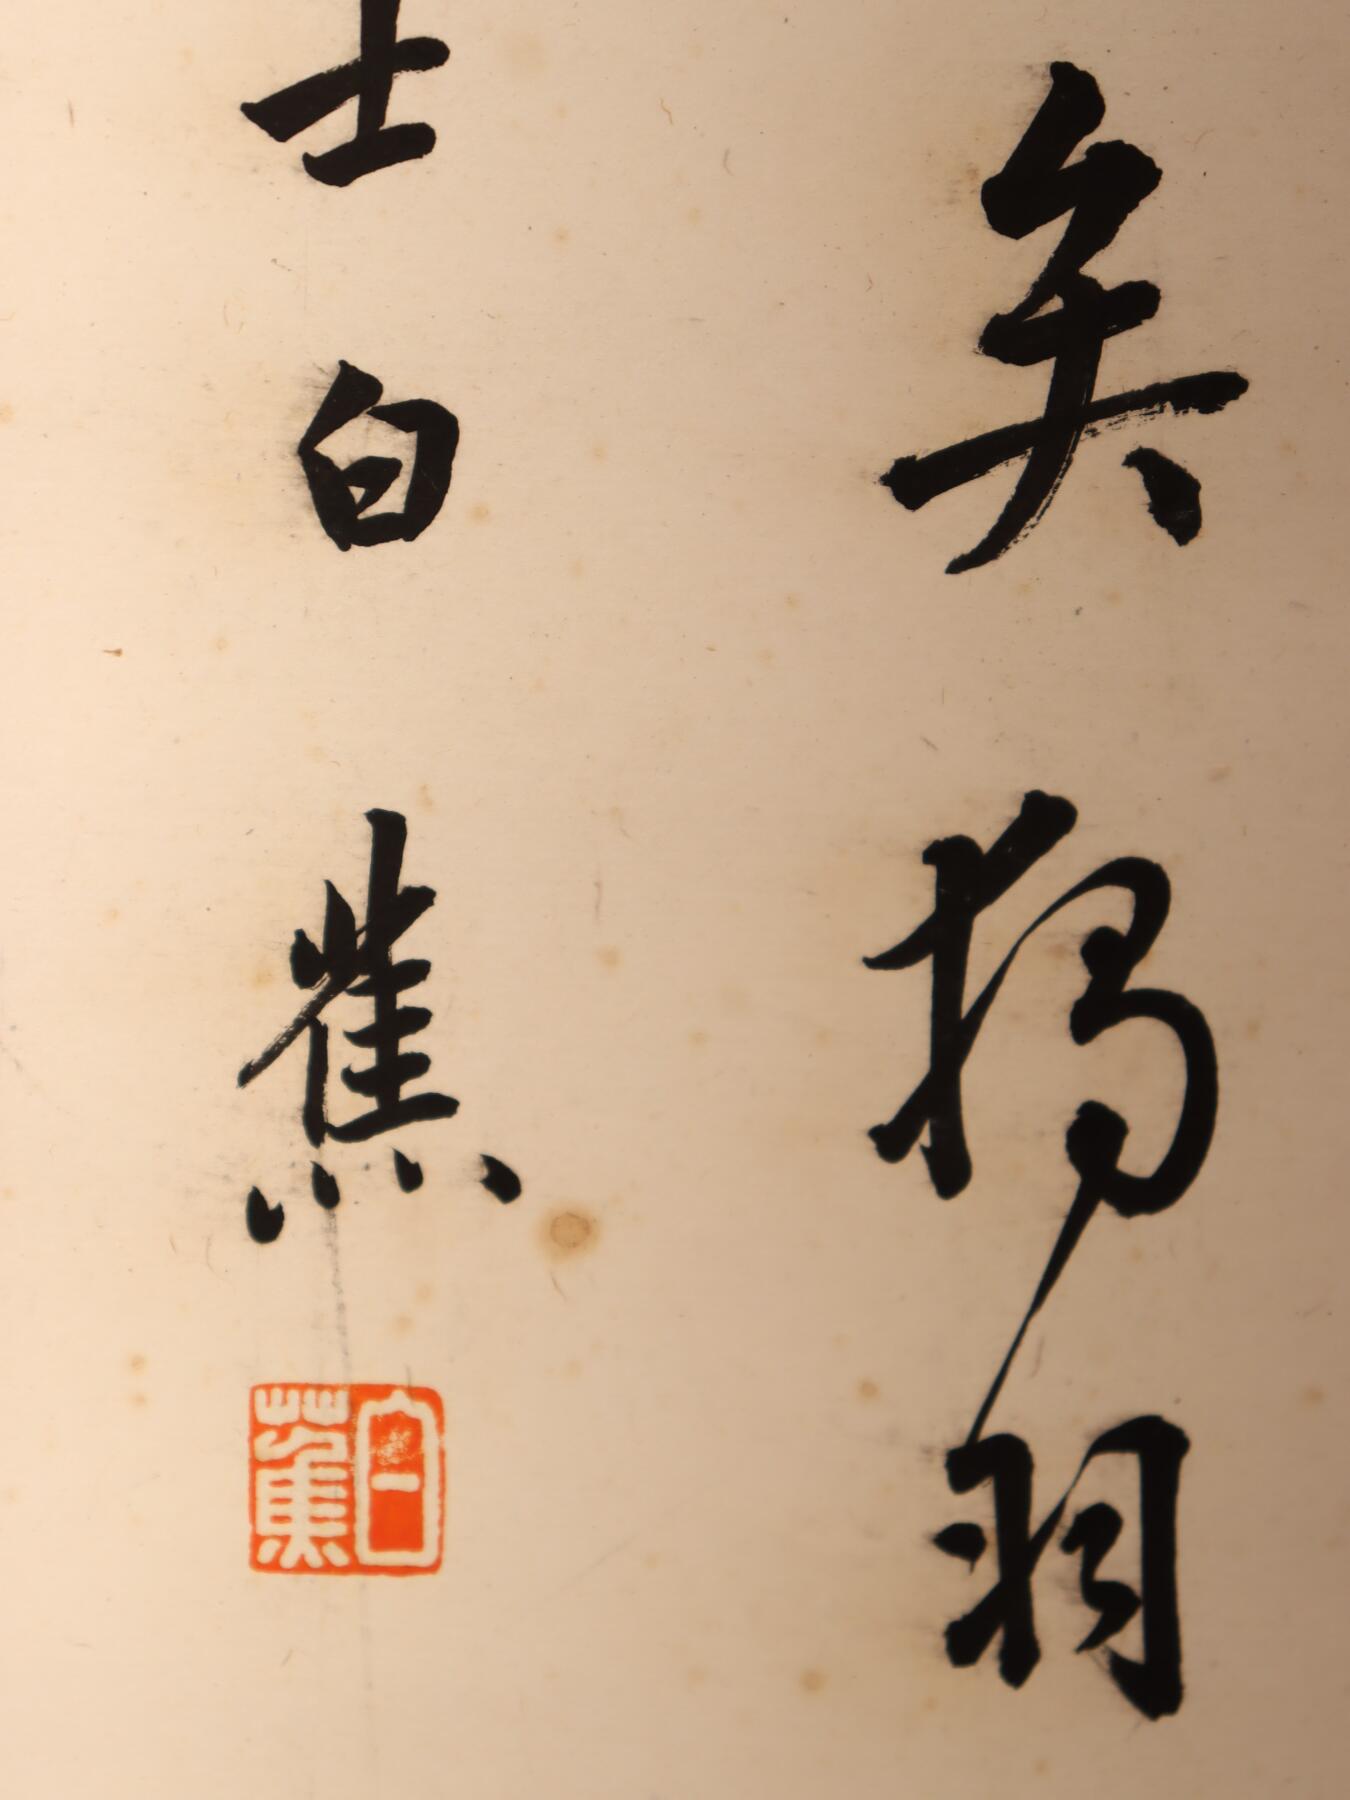 矣揚羽
士白蕉
白蕉